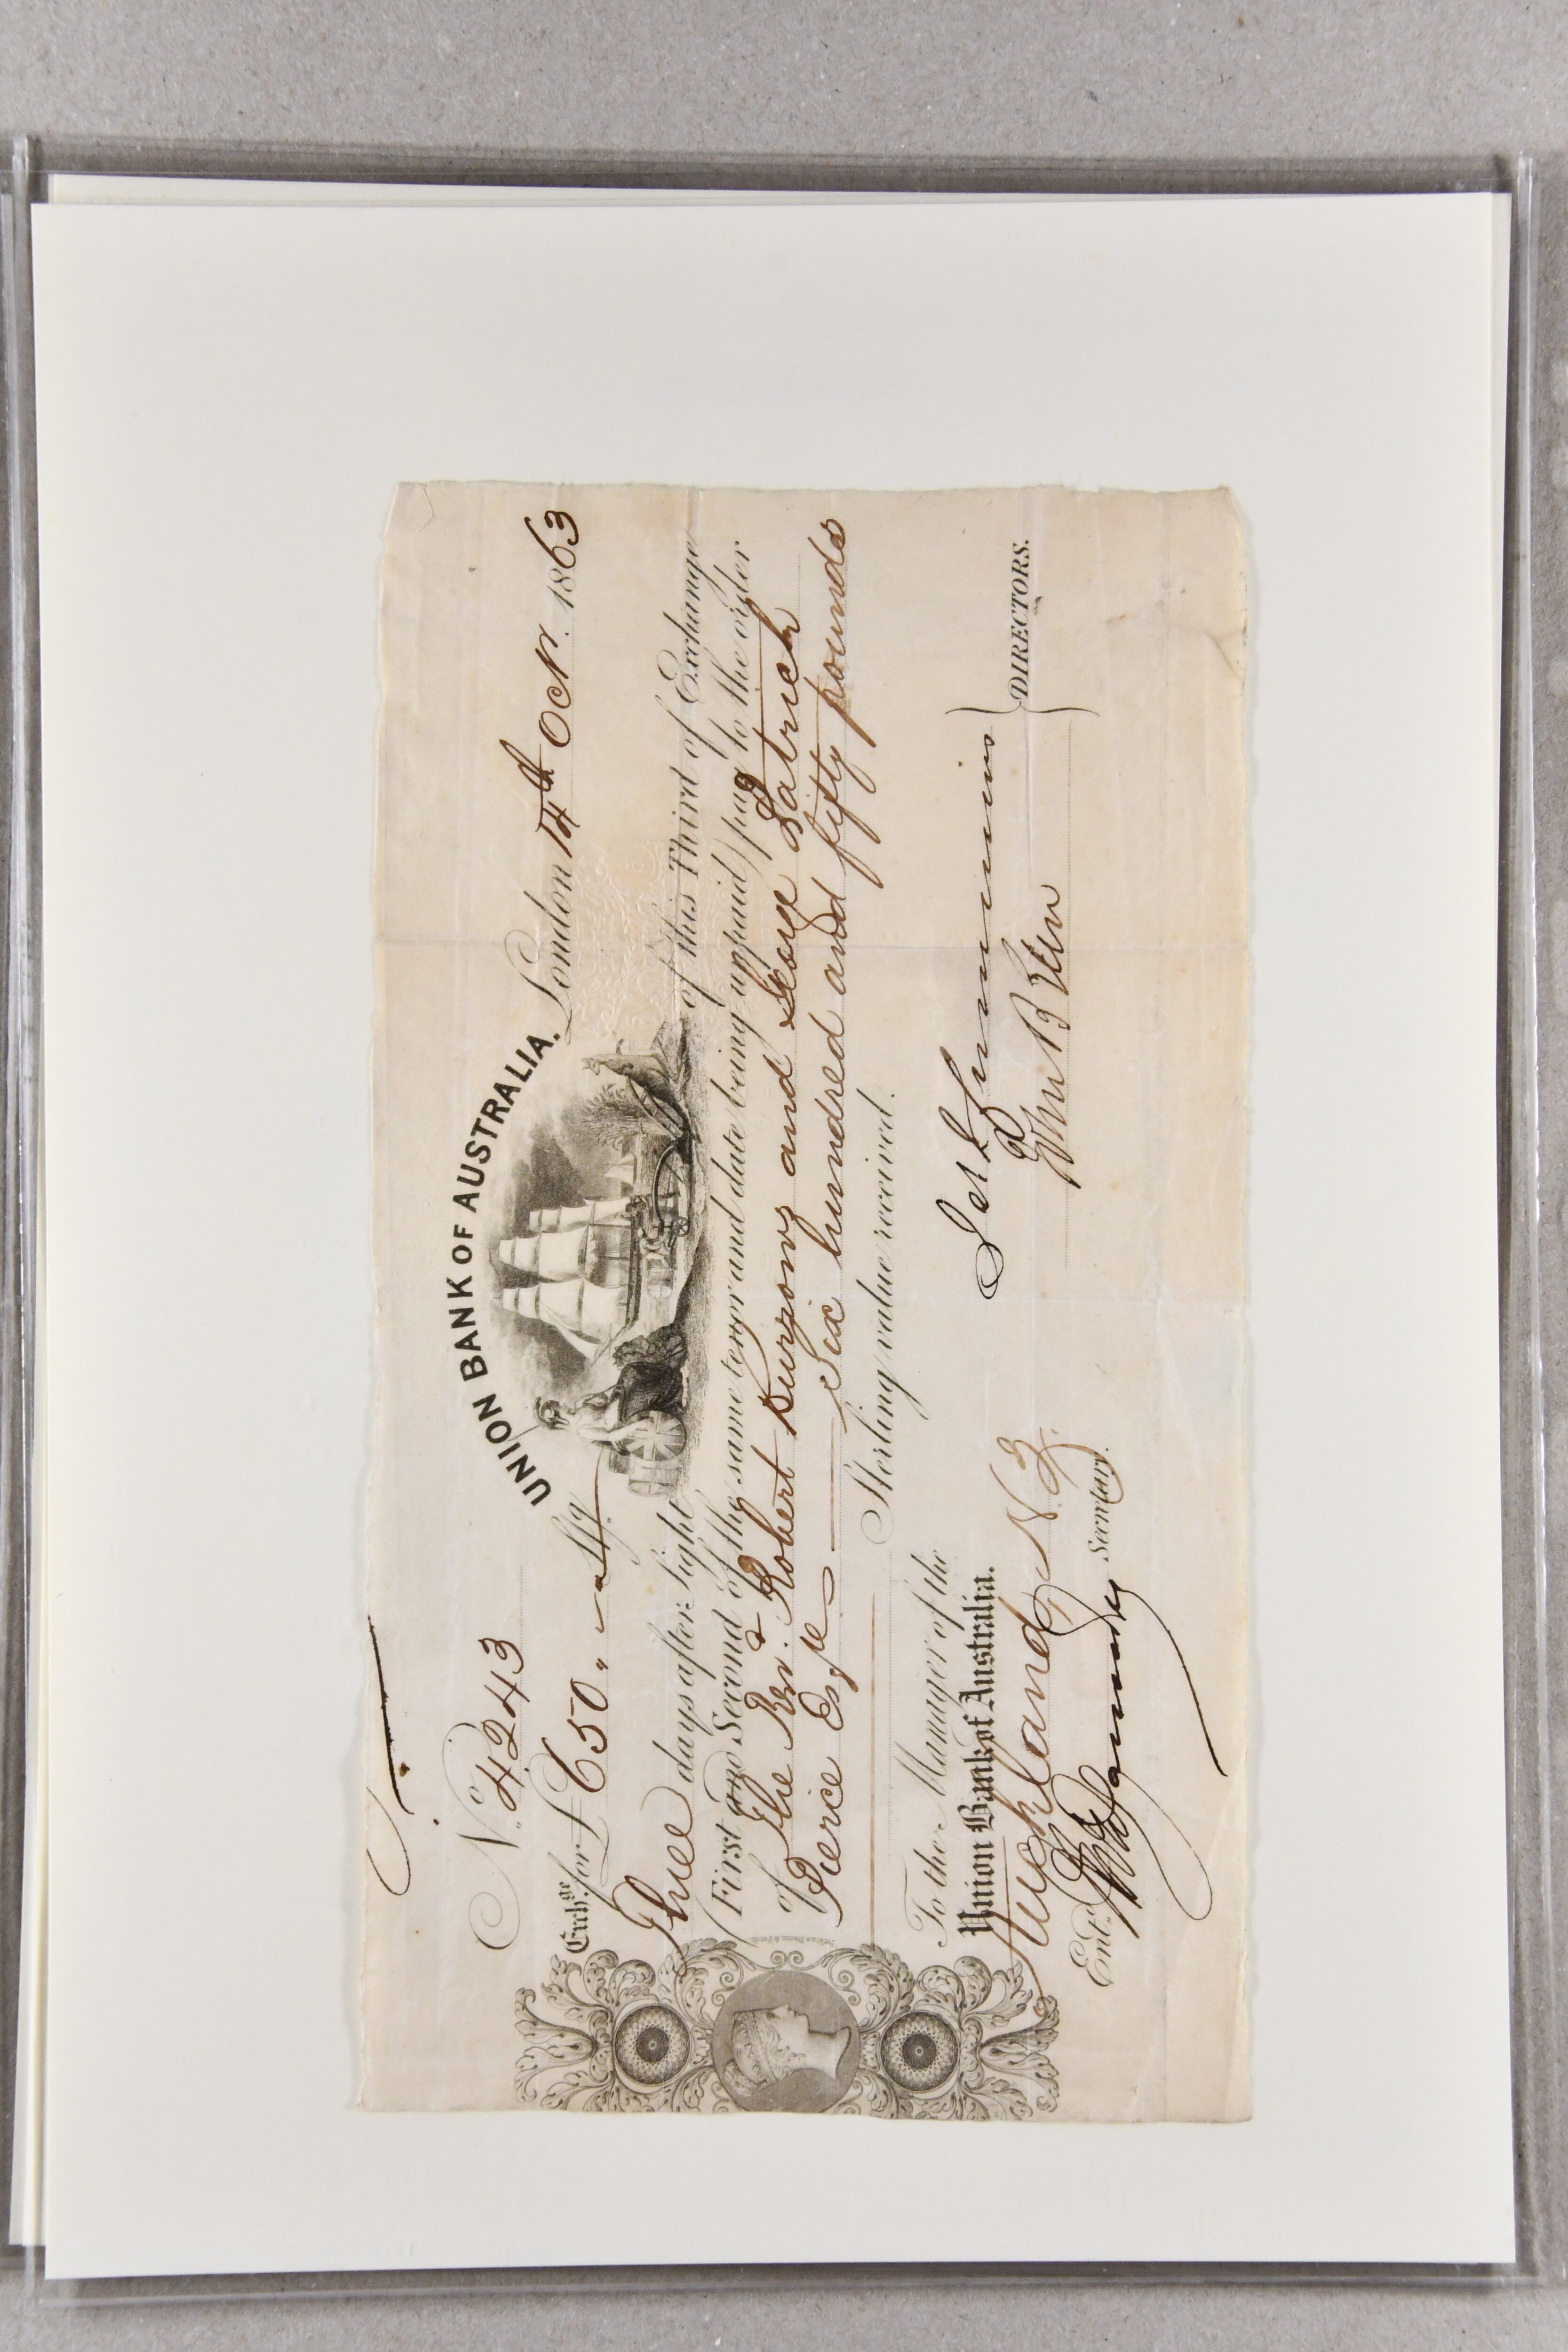 UNION BANK OF AUSTRALIA.
No. 4243 London 14th Octr. 1863
Exchge for £650 " – " – Stg.
Three days after sight of this Third of Exchange
(First and Second of the same tenor and date being unpaid) pay to the order
of The Revd. Robert Burrows and George Patrick
Pierce Esqre Six hundred and fifty pounds
Sterling value received.
To the Manager of the
Union Bank of Australia.
Auckland, N.Z.
DIRECTORS.
Entd. Secretary.